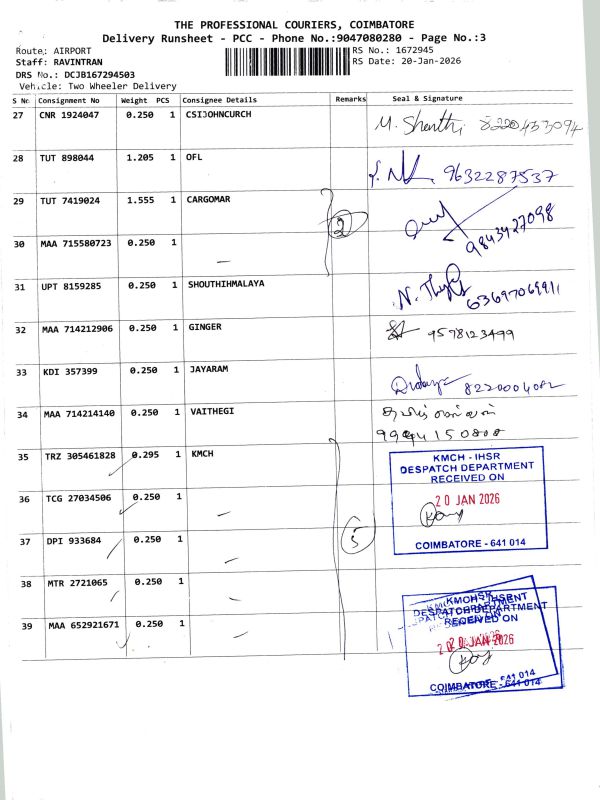 THE PROFESSIONAL COURIERS, COIMBATORE
Delivery Runsheet - PCC - Phone No.:9047080280 - Page No.:3
Route: AIRPORT RS No.: 1672945
Staff: RAVINTRAN RS Date: 20-Jan-2026
DRS No.: DCJB167294503
Vehicle: Two Wheeler Delivery
S No Consignment No Weight PCS Consignee Details Remarks Seal & Signature
27 CNR 1924047 0.250 1 CSIJOHNCURCH M. Shanthi 8220433094
28 TUT 898044 1.205 1 OFL 9632287537
29 TUT 7419024 1.555 1 CARGOMAR 2 9843927098
30 MAA 715580723 0.250 1 —
31 UPT 8159285 0.250 1 SHOUTHIHMALAYA 6369706991
32 MAA 714212906 0.250 1 GINGER 9578123499
33 KDI 357399 0.250 1 JAYARAM 8220004082
34 MAA 714214140 0.250 1 VAITHEGI
9994150808
35 TRZ 305461828 0.295 1 KMCH
KMCH - IHSR
DESPATCH DEPARTMENT
RECEIVED ON
20 JAN 2026
COIMBATORE - 641 014
36 TCG 27034506 0.250 1 —
37 DPI 933684 0.250 1 — 5
38 MTR 2721065 0.250 1 —
39 MAA 652921671 0.250 1 —
DESPATCH DEPARTMENT
RECEIVED ON
20 JAN 2026
COIMBATORE - 641 014